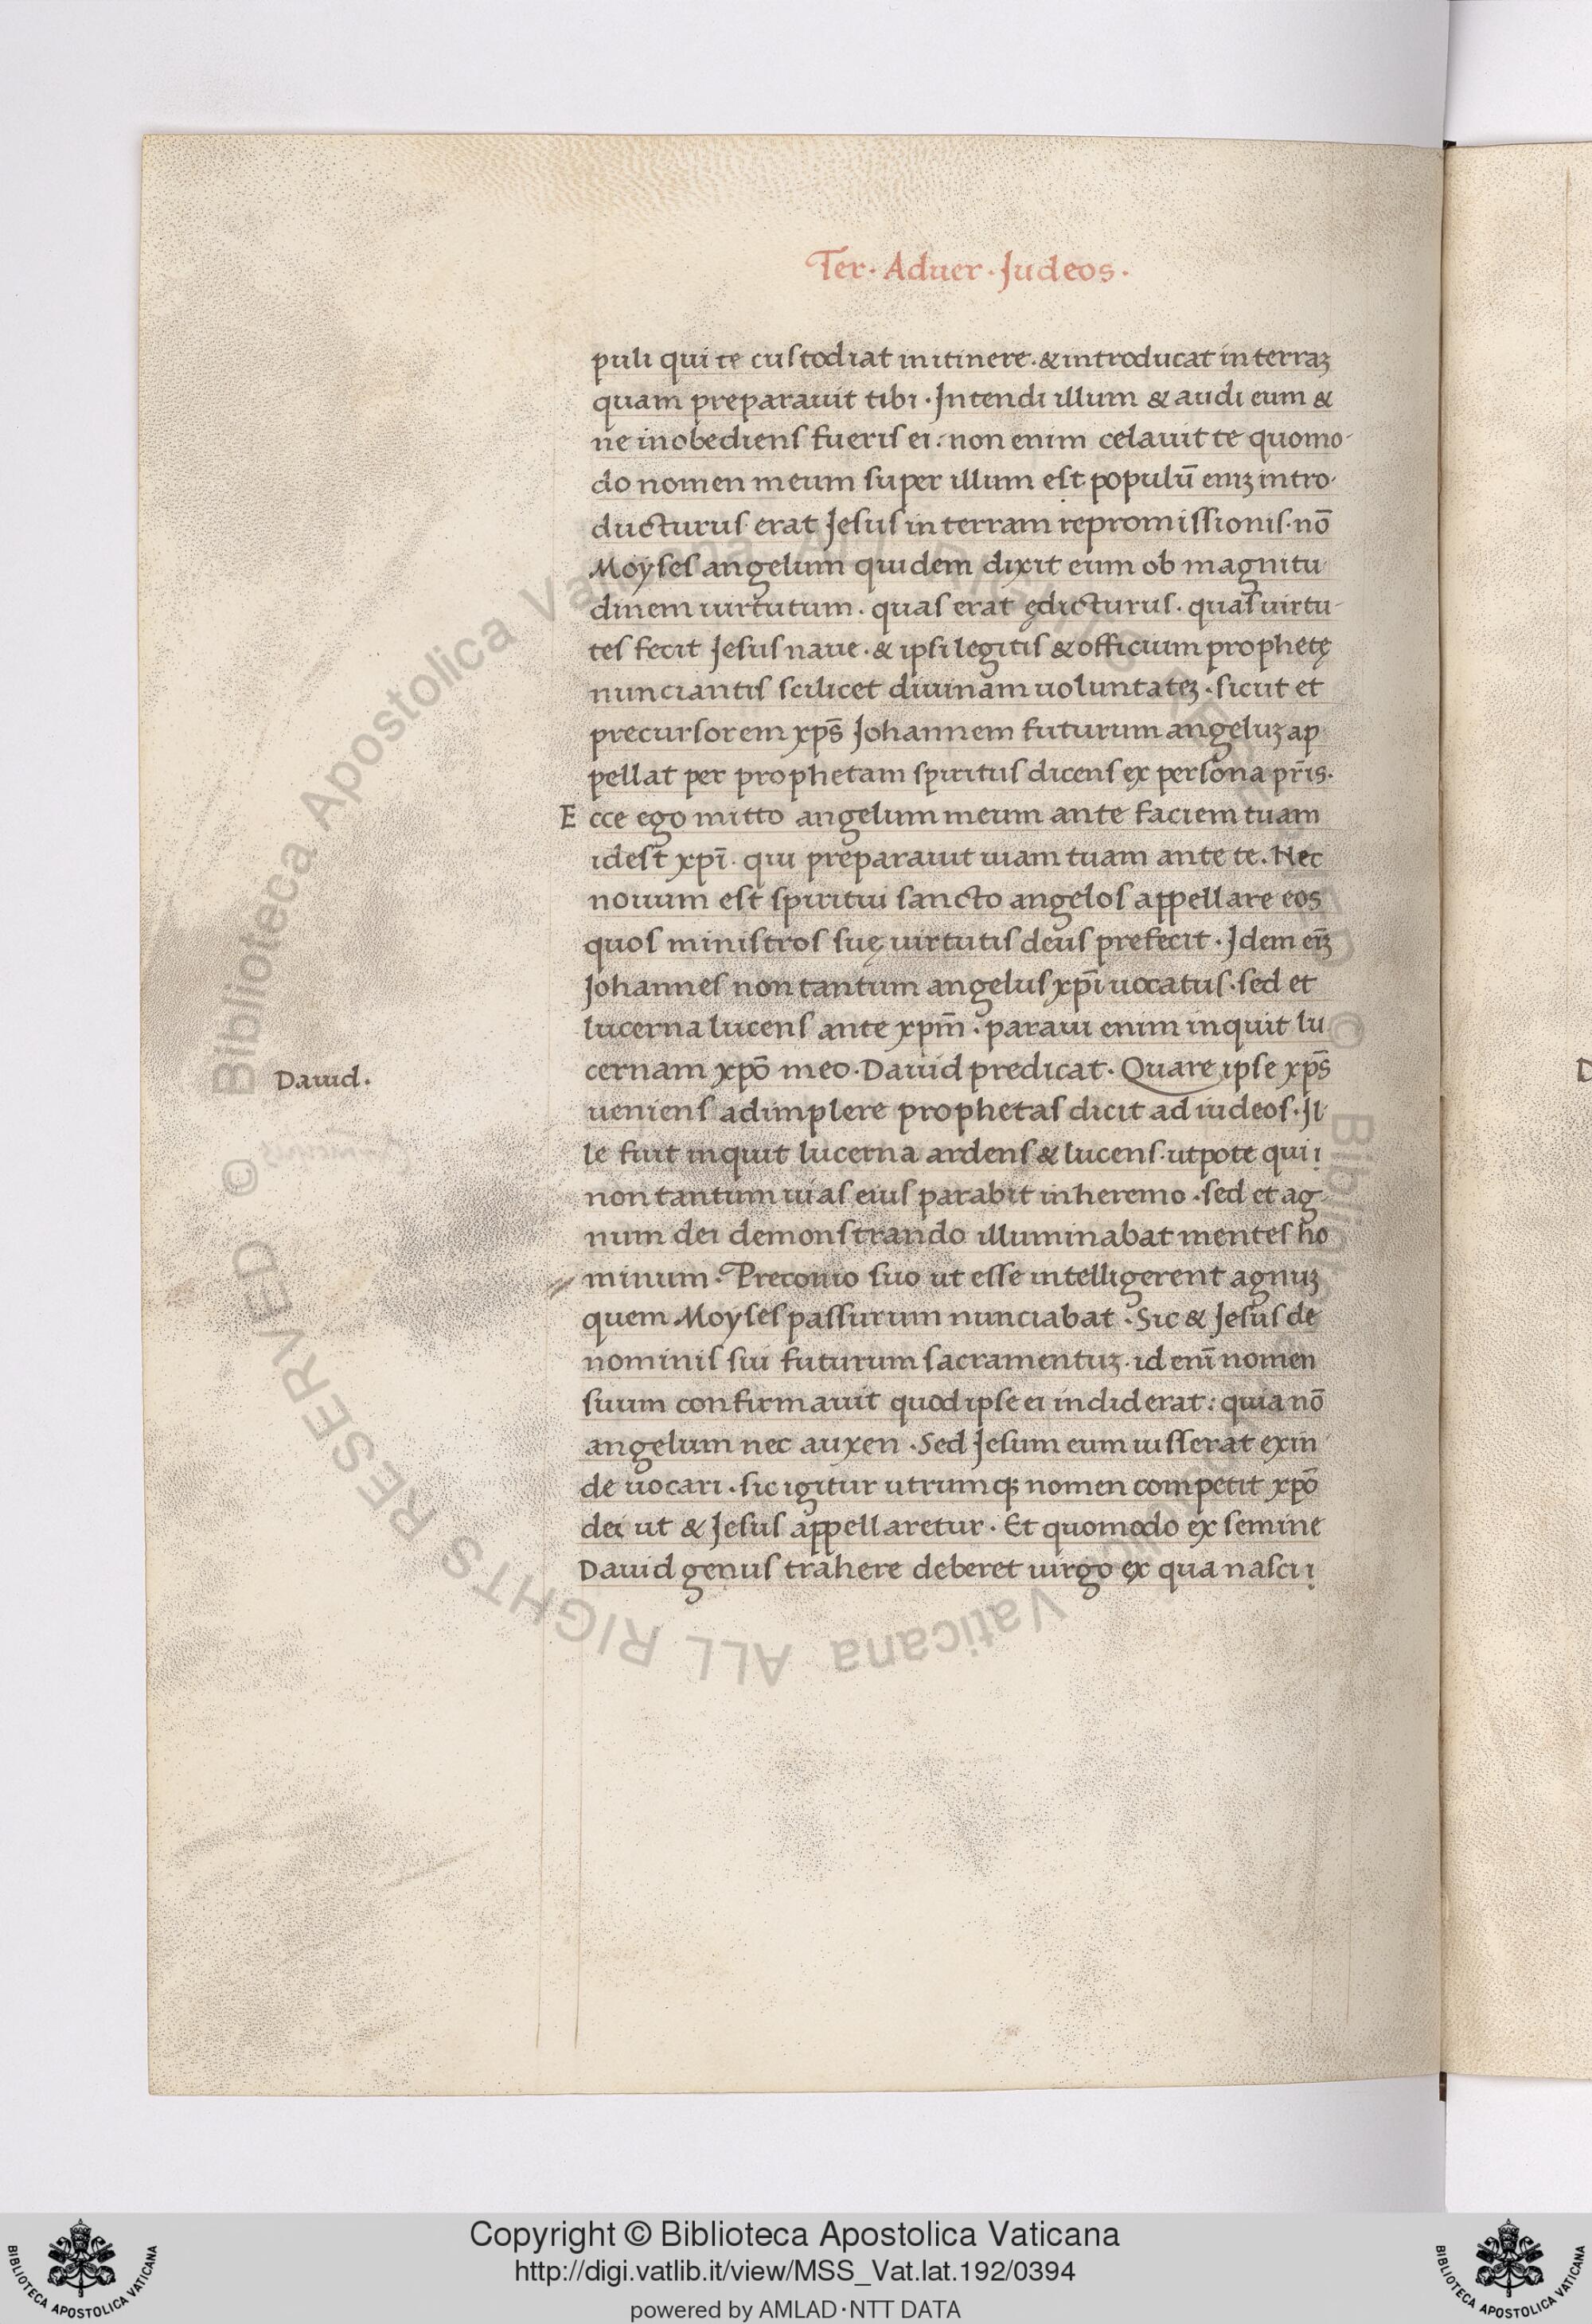 Ter · Aduer · Judeos ·
puli qui te custodiat in itinere · & introducat in terraꝫ
quam preparauit tibi · Intendi illum & audi eum &
ne inobediens fueris ei : non enim celauit te quomo-
do nomen meum super illum est populū eniꝫ intro-
ducturus erat Jesus in terram repromissionis · nō
Moyses angelum quidem dixit eum ob magnitu-
dinem uirtutum · quas erat ędicturus · quas uirtu-
tes fecit Jesus naue · & ipsi legitis & officium prophetę
nunciantis scilicet diuinam uoluntateꝫ · sicut et
precursorem xp̄s Johannem futurum angeluꝫ ap
pellat per prophetam spiritus dicens ex persona pr̄is ·
Ecce ego mitto angelum meum ante faciem tuam
idest xp̄i · qui preparauit uiam tuam ante te · Nec
nouum est spiritui sancto angelos appellare eos
quos ministros suę uirtutis deus prefecit · Idem eīꝫ
Johannes non tantum angelus xp̄i uocatus · sed et
lucerna lucens ante xpm̄ · paraui enim inquit lu
cernam xpō meo · Dauid predicat · Quare ipse xp̄s
Dauid ·
ueniens adimplere prophetas dicit ad iudeos · Il-
le fuit inquit lucerna ardens & lucens · utpote qui ı
non tantum uias eius parabit in heremo · sed et ag-
num dei demonstrando illuminabat mentes ho
minum · Preconio suo ut esse intelligerent agnuꝫ
quem Moyses passurum nunciabat · Sic & Jesus de
nominis sui futurum sacramentuꝫ · id enī nomen
suum confirmauit quod ipse ei indiderat : quia nō
angelum nec auxen · Sed Jesum eum iusserat exin
de uocari · sic igitur utrumqꝫ nomen competit xpō
dei ut & Jesus appellaretur · Et quomodo ex semine
Dauid genus trahere deberet uirgo ex qua nasci ı
© Biblioteca Apostolica Vaticana ALL RIGHTS RESERVED
Copyright © Biblioteca Apostolica Vaticana
http://digi.vatlib.it/view/MSS_Vat.lat.192/0394
powered by AMLAD·NTT DATA
BIBLIOTECA APOSTOLICA VATICANA
BIBLIOTECA APOSTOLICA VATICANA